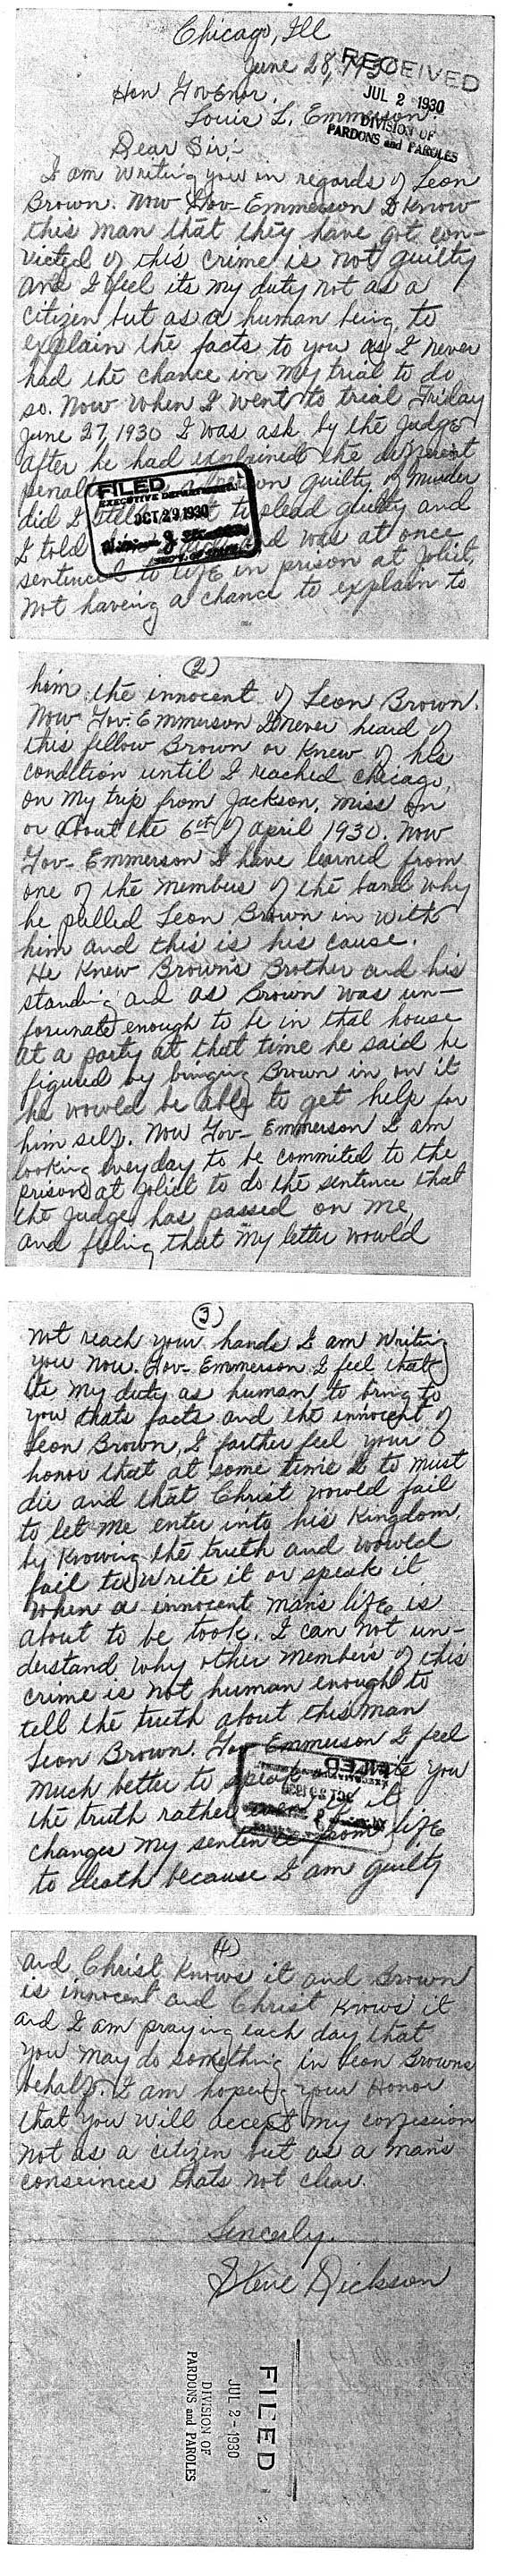 Chicago, Ill
June 28, 1930
RECEIVED
JUL 2 1930
DIVISION OF
PARDONS and PAROLES
Hon Govenor,
Louis L. Emmerson.
Dear Sir:-
I am writing you in regards of Leon
Brown. Now Gov-Emmerson I know
this man that they have got con-
victed of this crime is not guilty
and I feel its my duty not as a
citizen but as a human being to
explain the facts to you as I never
had the chance in my trial to do
so. Now when I went to trial Friday
June 27, 1930 I was ask by the Judge
after he had explained the different
penalt guilty of murder
did I to plead guilty and
I told and was at once
sentenced to life in prison at Joliet,
Not haveing a chance to explain to
FILED
EXECUTIVE DEPARTMENT
OCT 29 1930
(2)
him the innocent of Leon Brown.
Now Gov. Emmerson I never heard of
this fellow Brown or knew of his
condition until I reached chicago,
on my trip from Jackson, Miss on
or about the 6th of april 1930. Now
Gov- Emmerson I have learned from
one of the members of the band why
he pulled Leon Brown in with
him and this is his cause.
He knew Brown's Brother and his
standing and as Brown was un-
forunate enough to be in that house
at a party at that time he said he
figured by bringing Brown in on it
he would be able to get help for
him self. Now Gov- Emmerson I am
looking everyday to be commited to the
prison at Joliet to do the sentence that
the Judge has passed on me,
and feeling that my letter would
(3)
not reach your hands I am writing
you now. Gov- Emmerson I feel that
its my duty as human to bring to
you thats facts and the innocent of
Leon Brown, I farther feel your
honor that at some time I to must
die and that Christ would fail
to let me enter into his Kingdom,
by knowing the truth and would
fail to write it or speak it
when a innocent mans life is
about to be took. I can not un-
derstand why other members of this
crime is not human enough to
tell the truth about this man
Leon Brown. Gov Emmerson I feel
much better to speak you
the truth rather it
changes my sentence from life
to death because I am guilty
(4)
and Christ knows it and Brown
is innocent and Christ knows it
and I am praying each day that
you may do something in Leon Browns
behalf. I am hopeing your Honor
that you will accept my confession
not as a citizen but as a mans
conseinces thats not clear.
Sincerly.
Steve Dickson
FILED
JUL 2 - 1930
DIVISION OF
PARDONS and PAROLES